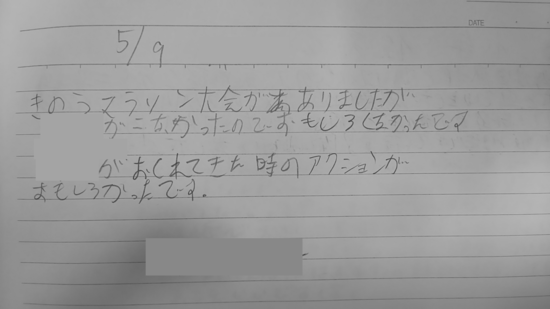 DATE
5/9
きのうマラソン大会がありましたが
がこなかったのでおもしろくなかったです
がおくれてきた時のアクションが
おもしろかったです.